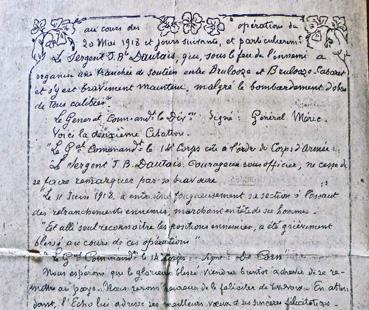 au cours des opérations du
20 Mai 1918 et jours suivants, et particulièrement
Le Sergent J.Bte Dautais, que, sous le feu de l'ennemi a
organisé une tranchée de soutien entre Brulooze et Brulooze Cabaret
et s'y est bravement maintenu, malgré le bombardement d'obus
de tous calibres.
Le Général Commandt la Dion Signé: Général
Voici la deuxième Citation.
Le Gal Commandt le 14e Corps cite à l'ordre du Corps d'Armée:
Le Sergent J.B. Dautais. Courageux sous officier, ne cesse de
se faire remarquer par sa bravoure.
"Le 11 Juin 1918, a entraîné fougueusement sa section à l'assaut
des retranchements ennemis, marchant en tête de ses hommes.
"Est allé seul reconnaître les positions ennemies, a été grièvement
blessé au cours de ces opérations"
Le Gal Commandt le 14e Corps. Signé:
Nous espérons que le glorieux blessé viendra bientôt achever de se re-
mettre au pays. Nous serons heureux de le féliciter de vive voix. En atten
dant, l'Echo lui adresse ses meilleurs vœux et ses sincères félicitations.